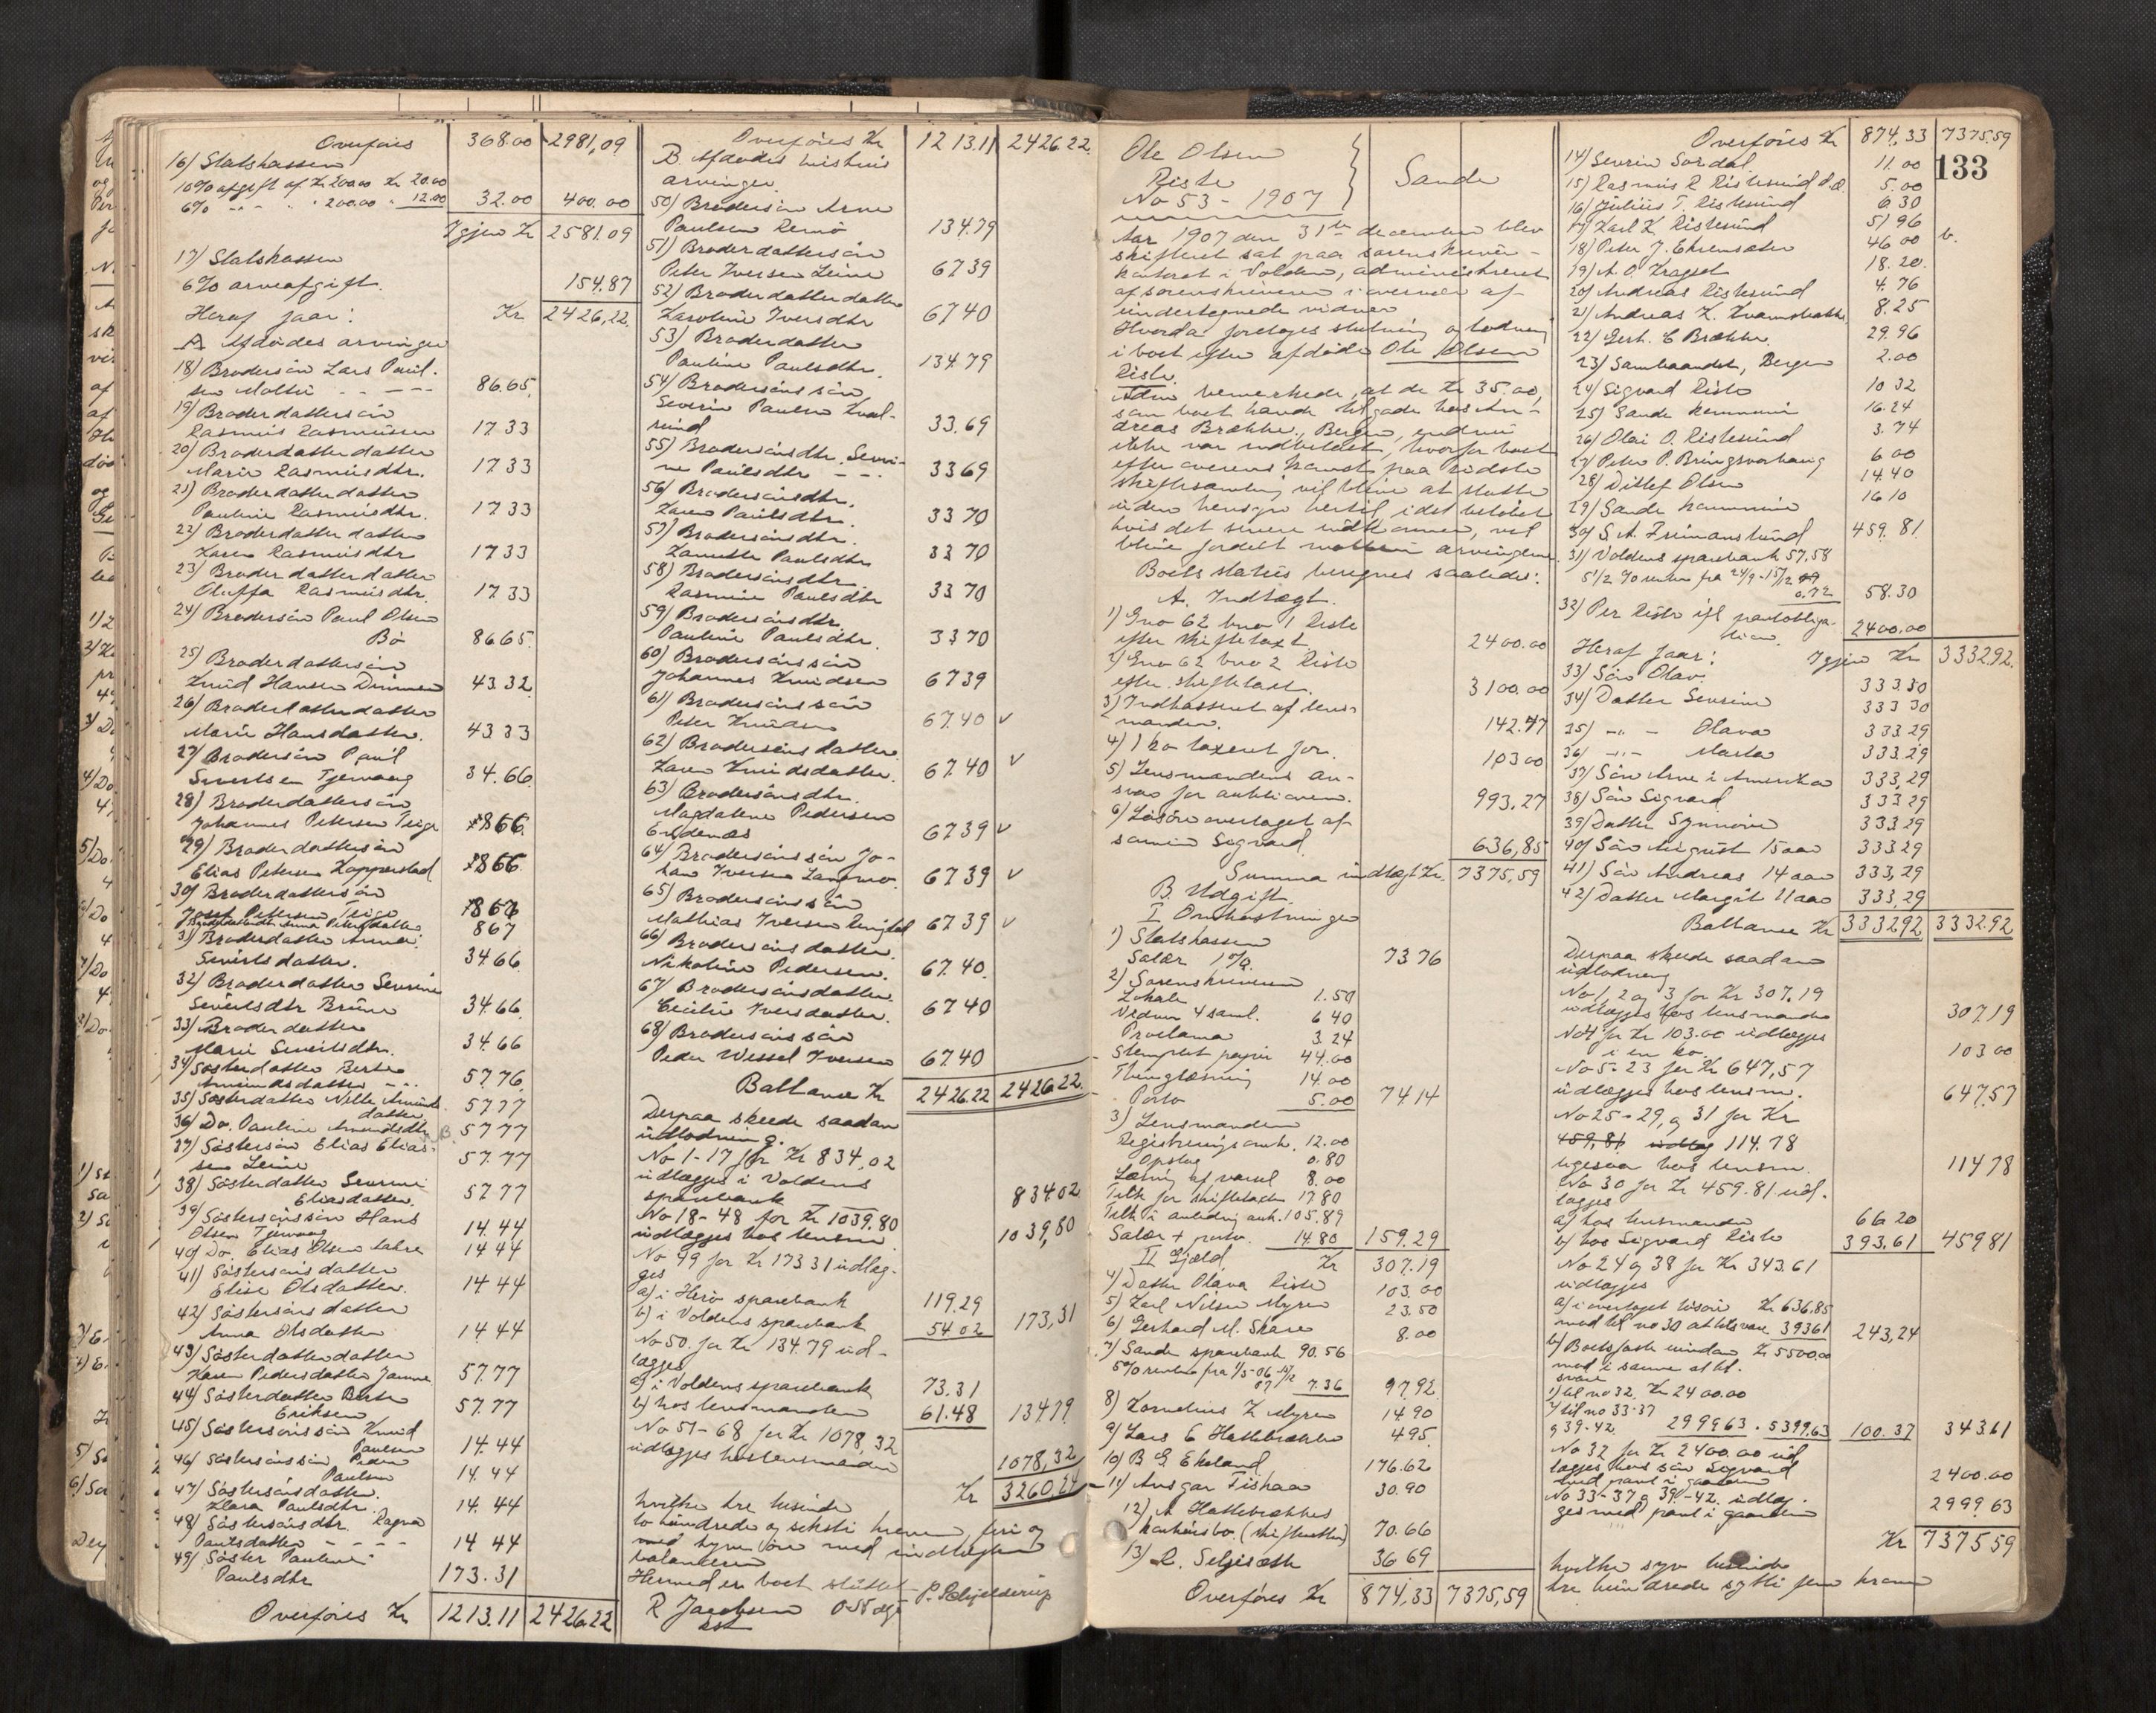 Overføres 368.00 2981,09
16) Statskassen
10% afgift af Kr 200.00 Kr 20.00
6% " " " 200.00 " 12.00 32.00 400.00
Igjen Kr 2581.09
17) Statskassen
6% arveafgift. 154.87
Heraf faar: Kr 2426,22
A Afdødes arvinger
18) Brodersön Lars Paul-
sen Moltu - - - 86.65
19) Broderdattersön
Rasmus Rasmussen 17 33
20) Broderdatterdatter
Marie Rasmusdtr. 17 33
21) Broderdatterdatter
Pauline Rasmusdtr. 17 33
22) Broderdatterdatter
Karen Rasmusdtr 17 33
23) Broderdatterdatter
Oluffa Rasmusdtr. 17 33
24) Brodersön Paul Olsen
Bö 86 65
25) Broderdattersön
Knud Hansen Dimmen 43 32
26) Broderdatterdatter
Marie Hansdatter. 43 33
27) Brodersön Paul
Sivertsen Tjervaag 34.66
28) Broderdattersön
Johannes Pettersen Teige 8 66
29) Broderdattersön
Elias Petersen Kopperstad 8 66
30) Broderdattersön
Josef Pettersen Teige 8 66
Anna Pettersdatter 8 67
31) Broderdatter Anne
Sivertsdatter. 34 66
32) Broderdatter Severine
Sivertsdtr Brune 34 66
33) Broderdatter
Marie Sivertsdtr. 34 66
34) Søsterdatter Berte
Amundsdatter - - - 57.76
35) Søsterdatter Nille Amunds
datter 57.77
36) Do. Pauline Amundsdtr 57 77
37) Søstersön Elias Elias-
sen Leine 57.77
38) Søsterdatter Severine
Eliasdatter. 57 77
39) Søstersönssön Hans
Olsen Tjervaag 14 44
40) Do. Elias Olsen Sahre 14 44
41) Søstersönsdatter
Elise Olsdatter. 14 44
42) Søstersönsdatter
Anna Olsdatter 14 44
43) Søsterdatterdatter
Karen Pedersdatter 57.77
44) Søsterdatter Berte
Eriksen 57.77
45) Søstersönssön Knud
Paulsen 14 44
46) Søstersönssön Peder
Paulsen 14 44
47) Søstersönsdatter
Klara Paulsdtr. 14 44
48) Søstersönsdtr. Ragna
Paulsdatter - - - - 14 44
49) Søster Pauline
Paulsdtr 173.31
Overføres Kr 1213.11 2426.22
Overføres Kr 1213.11 2426.22.
B. Afdødes hustrus
arvinger.
50) Brodersön Arne
Paulsen Remö 134.79
51) Broderdattersön
Peter Iversen Leine 67 39
52) Broderdatterdatter
Karoline Iversdtr 67 40
53) Broderdatter
Pauline Paulsdtr. 134.79
54) Brodersönssön
Severin Paulsen Kval-
sund 33.69
55) Brodersönsdtr. Severi-
ne Paulsdtr - - - 33 69
56) Brodersönsdtr.
Karen Paulsdtr. 33 70
57) Brodersönsdtr.
Lanette Paulsdtr 33 70
58) Brodersönsdtr.
Rasmine Paulsdtr 33 70
59) Brodersönsdtr.
Pauline Paulsdtr. 33 70
60) Brodersönssön
Johannes Knudsen 67 39
61) Brodersönssön
Peter Knudsen 67.40 v
62) Brodersönsdatter
Karen Knudsdatter. 67.40 v
63) Brodersönsdtr.
Magdalene Pedersen
67 39 v
64) Brodersönssön Jo-
han Iversen 67 39 v
65) Brodersönssön
Mathias Iversen 67 39 v
66) Brodersönsdatter
Nikoline Pedersen. 67.40.
67) Brodersönsdatter.
Cecilie Iversdatter. 67 40
68) Brodersönssön
Peder Wessel Iversen 67 40
Ballance Kr 2426.22 2426 22
Derpaa skede saadan
udlodning.
No 1-17 for Kr 834,02
udlægges i Voldens
sparebank 834 02
No 18-48 for Kr 1039.80
udlægges hos lensm. 1039,80
No 49 for Kr 173 31 udlæg-
ges
a) i Herø sparebank 119.29
b) i Voldens sparebank 54 02 173,31
No 50. for Kr 134.79 ud-
lægges
a) i Voldens sparebank 73.31
b) hos lensmanden 61.48 134 79
No 51-68 for Kr 1078,32
udlægges hos lensmanden 1078,32
Kr 3260.24
hvilke tre tusinde
to hundrede og seksti kroner, firi og
tyve öre med indtægten
balanserer
Hermed er boet sluttet
R Jacobsen
Ole Olsen
Riste
No 53 - 1907
Sande
Aar 1907 den 31te december blev
skifteret sat paa sorenskriver-
kontoret i Volden, administreret
af sorenskriveren i overvær af
undertegnede vidner
Hvorda foretoges slutning og lodning
i boet efter afdøde Ole Olsen
Riste.
Adm bemerkede, at de Kr 35.00,
som boet havde tilgode hos An-
dreas Brække, Bergen, endnu
ikke var indbetalt, hvorfor boet
efter overenskomst paa sidste
skiftesamling vil blive at slutte
uden hensyn hertil, idet beløbet
hvis det senere indkommer, vil
blive fordelt mellem arvingerne
Boets status beregnes saaledes:
A. Indtægt.
1) Gno 62 bno 1 Riste
efter skiftetaxt. 2400.00
2) Gno 62 bno 2 Riste
efter skiftetaxt. 3100.00
3) Indkasseret af lens-
manden. 142.47
4) 1 ko taxeret for. 103 00
5) Lensmandens an-
svar for auktionen. 993.27
6) Løsøre overtaget af
sønnen Sigvard 636,85
Summa indtægt Kr. 7375,59
B. Udgift.
I Omkostninger
1) Statskassen
Salær 1%. 73 76
2) Sorenskriveren
Lokale 1.50
Vidner 4 saml. 6 40
Proclama 3 24
Stemplet papir 44.00
Thinglæsning 14.00
Porto 5.00 74 14
3) Lensmanden
Registreringsomk. 12.00
Opslag 0.80
Læsning af varsel 8.00
Tilk for skiftetaxten 17.80
Tilk i anledning auk. 105.89
Salær + porto. 14.80 159.29
II Gjæld. Kr 307.19
4) Datter Olava Riste 103.00
5) Karl Nilsen Myren 23.50
6) Gerhard M. Skare 8.00
7) Sande sparebank 90.56
5% renter fra 1/5-06 - 7.36 97.92
8) Kornelius K Myren 14 90
9) Lars E Hattebrække 4 95
10) B G Ekeland 176.62
11) Ansgar Fiskaa 30.90
12) A Hattebrækkes
konkursbo. (skifteretten) 70.66
13) R. Selgisæth 36 69
Overføres Kr 874,33 7375,59
Overføres Kr 874,33 7375.59
133
14) Severin Sørdal 11.00
15) Rasmus R Ristesund 5.00
16) Julius T. Ristesund 6 30
17) Karl K Ristesund 51 96
18) Peter J. Ehrensæter 46 00
19) A. O. Kragset 18.20.
20) Andreas Ristesund 4.76
21) Andreas K. 8.25
22) Gert. E Brække. 29.96
23) Sambaandet, Bergen 2.00
24) Sigvard Riste 10 32
25) Sande kommune 16.24
26) Olai O. Ristesund 3.74
27) Peter P. Bringsvorhaug 6 00
28) Ditlef Olsen 14.40
29) Sande kommune 16 10
30) S. A. Frimanslund 459.81
31) Voldens sparebank 57.58
5 1/2 % renter fra 24/9 - 15/12
0.72 58.30
32) Per Riste ifl pantobliga-
tion 2400.00
Igjen Kr 3332.92.
Heraf faar:
33) Søn Olav. 333.30
34) Datter Severine 333 30
35) -"- - Olava 333 29
36) -"- Marta 333.29
37) Søn Arne i Amerika 333,29
38) Søn Sigvard 333 29
39) Datter Synnöve 333 29
40) Søn August 15 aar 333 29
41) Søn Andreas 14 aar 333,29
42) Datter Margit 11 aar 333,29
Ballance Kr 3332 92 3332.92
Derpaa skede saadan
udlodning
No 1, 2 og 3 for Kr 307.19
udlægges hos lensmanden 307.19
No 4 for Kr 103.00 udlægges
i en ko. 103 00
No 5-23 for Kr 647,57
udlægges hos lensm. 647,57
No 25-29, og 31 for Kr
459,81 114.78
ligesaa hos lensm. 114 78
No 30 for Kr 459.81 ud-
lægges
a) hos lensmanden 66 20
b) hos Sigvard Riste 393.61 459 81
No 24 og 38 for Kr 343.61
udlægges
a) i overtaget løsøre Kr 636.85
mod til no 30 at tilsvare 393 61 243,24
b) Boets faste eiendom Kr 5500.00
mod i samme at til-
svare
1) til no 32. Kr 24 00.00
2) til no 33-37
og 39-42. 2999 63 . 5399.63 100.37 343.61
No 32 for Kr 2400.00 ud
lægges hos søn Sigvard
med pant i gaarden 2400.00
No 33-37 og 39-42. udlæg-
ges med pant i gaarden 2999 63
Kr 7375 59
hvilke syv tusinde
tre hundrede sytti fem kroner